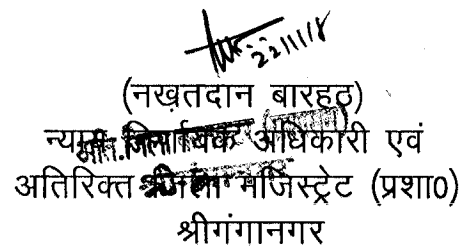 22/11/18
(नखतदान बारहठ)
न्याय निर्णायक अधिकारी एवं
अतिरिक्त जिला मजिस्ट्रेट (प्रशा0)
श्रीगंगानगर